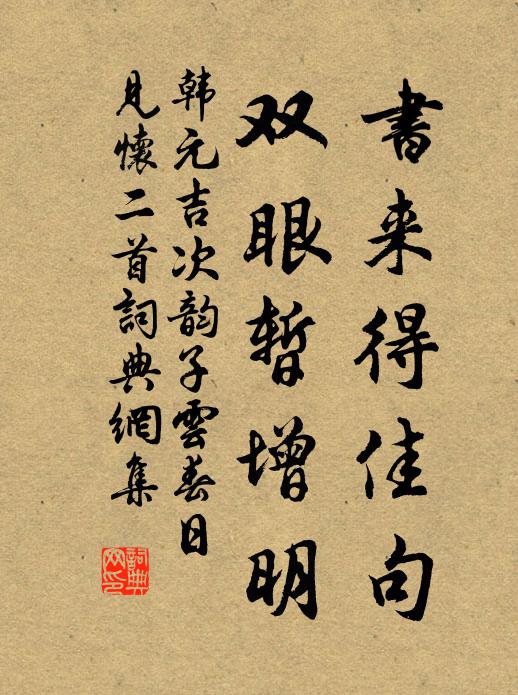 書来得佳句
双眼暫增明
韩元吉次韵子雲春日
見懷二首詞典網集
詞典网印